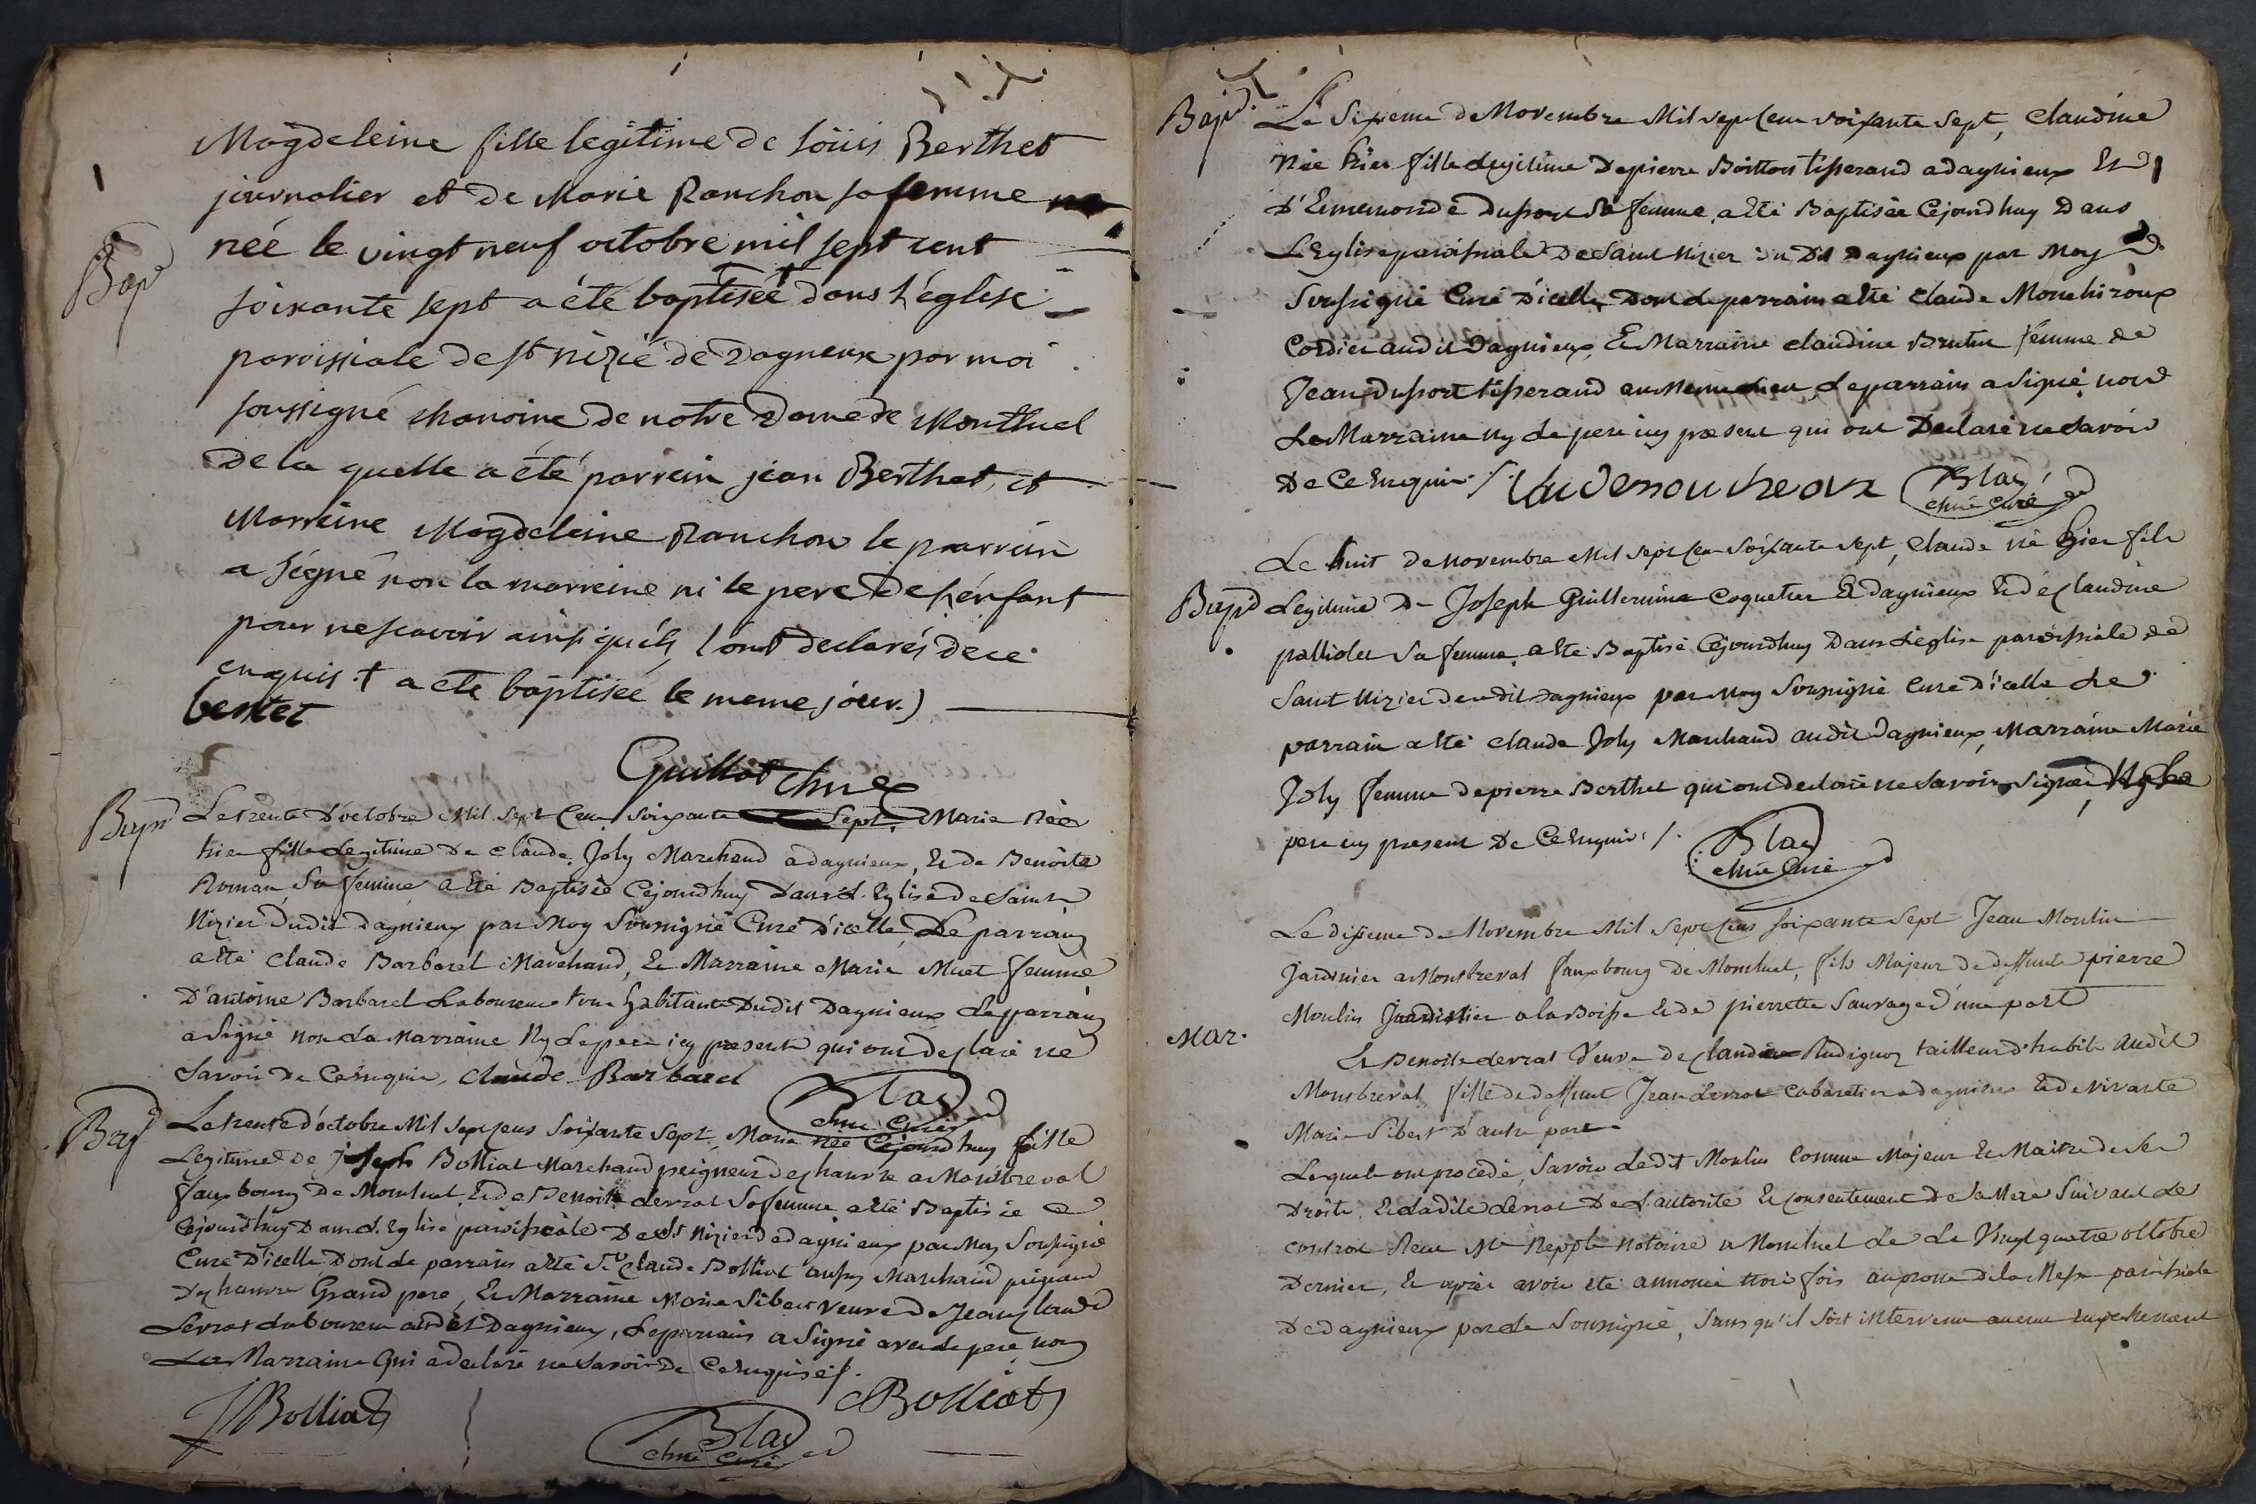 Bap
Magdeleine fille legitime de loüis Berthet
journalier et de Marie Ranchon sa femme
née le vingt neuf octobre mil sept cent
soixante sept a été baptisée † dans l'église
paroissiale de st nizié de Dagneux par moi
soussigné chanoine de notre Dame de Montluel
de la quelle a été parrein jean Berthet, et
Marreine Magdeleine Ranchon le parrein
a signé non la marreine ni le pere de l'enfant
pour ne scavoir ainsi qu'ils l'ont declarés de ce
enquis. † a ete baptisée le meme jour.)
bertet
Guillot chne
Bap
Le trente d'octobre Mil sept Cent soixante sept. Marie née
hier fille Legitime de claude Joly Marchand a dagnieux, Et de Benoite
Roman sa femme a Eté Baptisée Cejourdhuy dans L'Eglise de Saint
Nizier dudit dagnieux par Moy soussigné Curé D'icelle, Le parrain
a Eté claude Barbarel Marchand, Et Marraine Marie Muet femme
D'antoine Barbarel Laboureur tous habitants Dudit Dagnieux Le parrain
a signé non La Marraine Ny Le pere icy present qui ont declaré ne
savoir de Ce Enquis, claude Barbarel
Blad
chne Curé
Bap
Le trente d'octobre Mil sept Cent soixante sept, Marie née Cejourdhuy fille
Legitime de joseph Bolliat Marchand peigneur de chanvre a Montbreval
faux bourg de Montluel, Et de Benoite derrat sa femme a Eté Baptisée
Cejourdhuy Dans L'Eglise paroissiale De St Nizier de dagnieux par Moy soussigné
Curé D'icelle Dont Le parrain a Eté Sr claude Bolliat aussy Marchand peigneur
De chanvre Grand pere, Et Marraine Marie Sibert veuve de Jean claude
derrat Laboureur audit Dagnieux, Le parrain a signé avec Le pere non
La Marraine Qui a declaré ne savoir De Ce Enquise /.
JBolliat
CBolliat
Blad
chne Curé
Bap
Le Sixieme de Novembre Mil sept Cent soixante sept, claudine
Née hier fille Legitime De pierre Boitton tisserand a dagnieux Et
D'Ennemonde Dusort sa femme a Eté Baptisée Cejourdhuy Dans
L'Eglise paroissiale De Saint Nizier du Dit Dagnieux par Moy
Soussigné Curé D'icelle, Dont Le parrain a Eté claude Mouchiroux
Cordier audit Dagnieux, Et Marraine claudine Brutin femme de
Jean Dusort tisserand au Meme Lieu, Le parrain a signé non
La Marraine ny Le pere icy present qui ont Declaré ne savoir
De Ce Enquis /.
claude mouchroux
Blad
chne Curé
Bap
Le huit de novembre Mil sept Cent soixante sept, claude né hier fils
Legitime De Joseph Guillermin Coquetier a dagnieux Et de claudine
palliolet sa femme, a Eté Baptisé Cejourdhuy Dans L'église paroissiale de
Saint Nizier de dudit Dagnieux par Moy soussigné Curé D'icelle Le
parrain a Eté claude Joly Marchand audit dagnieux, Marraine Marie
Joly femme de pierre Berthet qui ont declaré ne savoir signer Ny Le
pere icy present De Ce Enquis /.
Blad
chne Curé
Mar.
Le dixieme de Novembre Mil sept Cent soixante sept Jean Moulin
Jardinier a Montbreval faux bourg de Montluel, fils Majeur de deffunt pierre
Moulin Jardinier a la Boisse Et de pierrette Sauvage d'une part
Et Benoite derrat Veuve de claude Rudigoz tailleur d'habits audit
Montbreval, fille de deffunt Jean derrat Cabaretier a dagnieux Et de vivante
Marie Sibert D'autre part
Lequels ont procedé, savoir Ledit Moulin Comme Majeur Et Maitre de ses
Droits, Et Ladite derrat De L'autorité Et Consentement De sa Mere suivant Le
Contrat Recu Me Nepple Notaire a Montluel Le Le Vingt quatre octobre
Dernier, Et après avoir été annoncé trois fois au prone de la Messe paroissiale
De dagnieux par Le Soussigné, Sans qu'il soit intervenu aucun Empechement